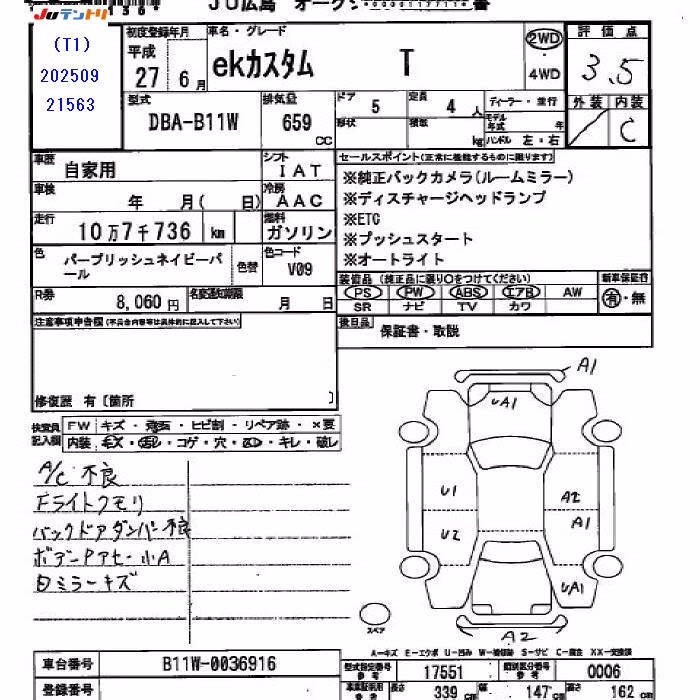 JUテントリ
JU広島 オークション
(T1)
202509
21563
初度登録年月
平成
27 6月
車名・グレード
ekカスタム T
2WD
・
4WD
評価点
3.5
外装 内装
C
型式
DBA-B11W
排気量
659
CC
ドア
5
定員
4 人
形状
積載
kg
ディーラー・並行
モデル年式 年
ハンドル 左・右
車歴
自家用
シフト
IAT
車検
年 月( 日)
冷房
AAC
走行
10万7千736 km
燃料
ガソリン
色
パープリッシュネイビーパール
色替
色コード
V09
R券
8,060円
名変通知期限
月 日
セールスポイント(正常に機能するものに限ります)
※純正バックカメラ(ルームミラー)
※ディスチャージヘッドランプ
※ETC
※プッシュスタート
※オートライト
装備品 (純正品に限り○をつけてください)
新車保証書
PS PW ABS エアB AW
SR ナビ TV カワ
有・無
後日品
保証書・取説
注意事項申告欄(不具合内容等は具体的に記入して下さい)
修復歴 有〔箇所 〕
検査員記入欄
FW キズ・飛石・ヒビ割・リペア跡・×要
内装 毛メ・汚レ・コゲ・穴・凹・キレ・破レ
A/C 不良
Fライトクモリ
バックドアダンパー不良
ボデーPアセ・小A
白ミラーキズ
A1
UA1
U1
U2
A2
A1
UA1
A2
スペア
A-キズ E-エクボ U-凹み W-補修跡 S-サビ C-腐食 XX-交換済
車台番号
B11W-0036916
登録番号
型式指定番号
参考
17551
類別区分番号
参考
0006
車検証利用
参考
長さ
339
幅
147 cm
高さ
162